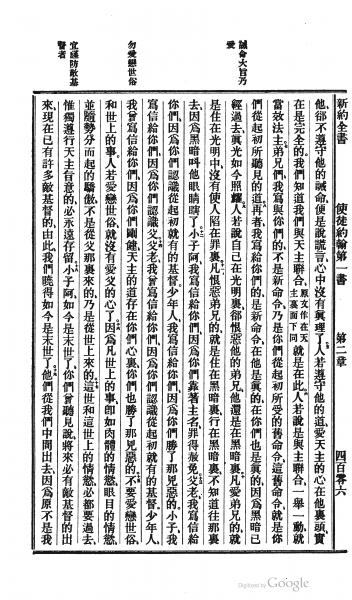 新約全書 使徒約翰第一書 第二章 四百零六
他卻不遵守他的誡命便是說謊言心中沒有眞理了人若遵守他的道愛天主的心在他裏頭實
在是完全的我們知道我們與天主聯合原文作在天主裏面下同就是在此人若說是與主聯合一舉一動就
當效法主弟兄們我寫與你們的不是新命令乃是你們從起初所受的舊命令這舊命令就是你
們從起初所聽見的道再者我寫給你們的是新命令在他是眞的在你們也是眞的因爲黑暗已
經過去眞光如今照耀人若說自己在光明裏卻恨惡他的弟兄他還是在黑暗裏凡愛弟兄的就
是住在光明中沒有使人陷在罪裏凡恨惡弟兄的就是住在黑暗裏行在黑暗裏不知道往那裏
去因爲黑暗叫他眼睛瞎了小子阿我寫信給你們因爲你們靠著主名罪得赦免父老我寫信給
你們因爲你們認識從起初就有的基督少年人我寫信給你們因爲你們勝了那兇惡的小子我
寫信給你們因爲你們認識父父老我曾寫信給你們因爲你們認識從起初就有的基督少年人
我曾寫信給你們因爲你們剛健天主的道存在你們心裏你們也勝了那兇惡的不要愛戀世俗
和世上的事人若愛戀世俗就沒有愛父的心了因爲凡世上的事卽如肉體的情慾眼目的情慾
並隨勢分而起的驕傲不是從父那裏來的乃是從世上來的這世和這世上的情慾必都要過去
惟獨遵行天主旨意的必永遠存留小子阿如今是末世了你們曾聽見說將來必有敵基督的出
來現在已有許多敵基督的由此我們曉得如今是末世了他們從我們中間出去因爲原不是我
誡命大旨乃
愛
勿愛戀世俗
宜謹防敵基
督者
Digitized by Google